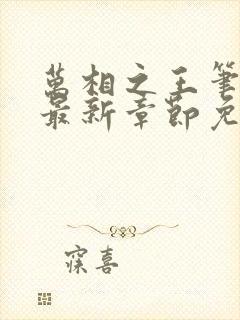 萬相之王筆
最新章節免
寀喜